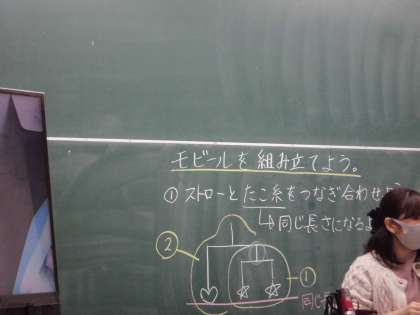 モビールを組み立てよう。
① ストローとたこ糸をつなぎ合わせ
↳同じ長さになるよ
②
①
同じ